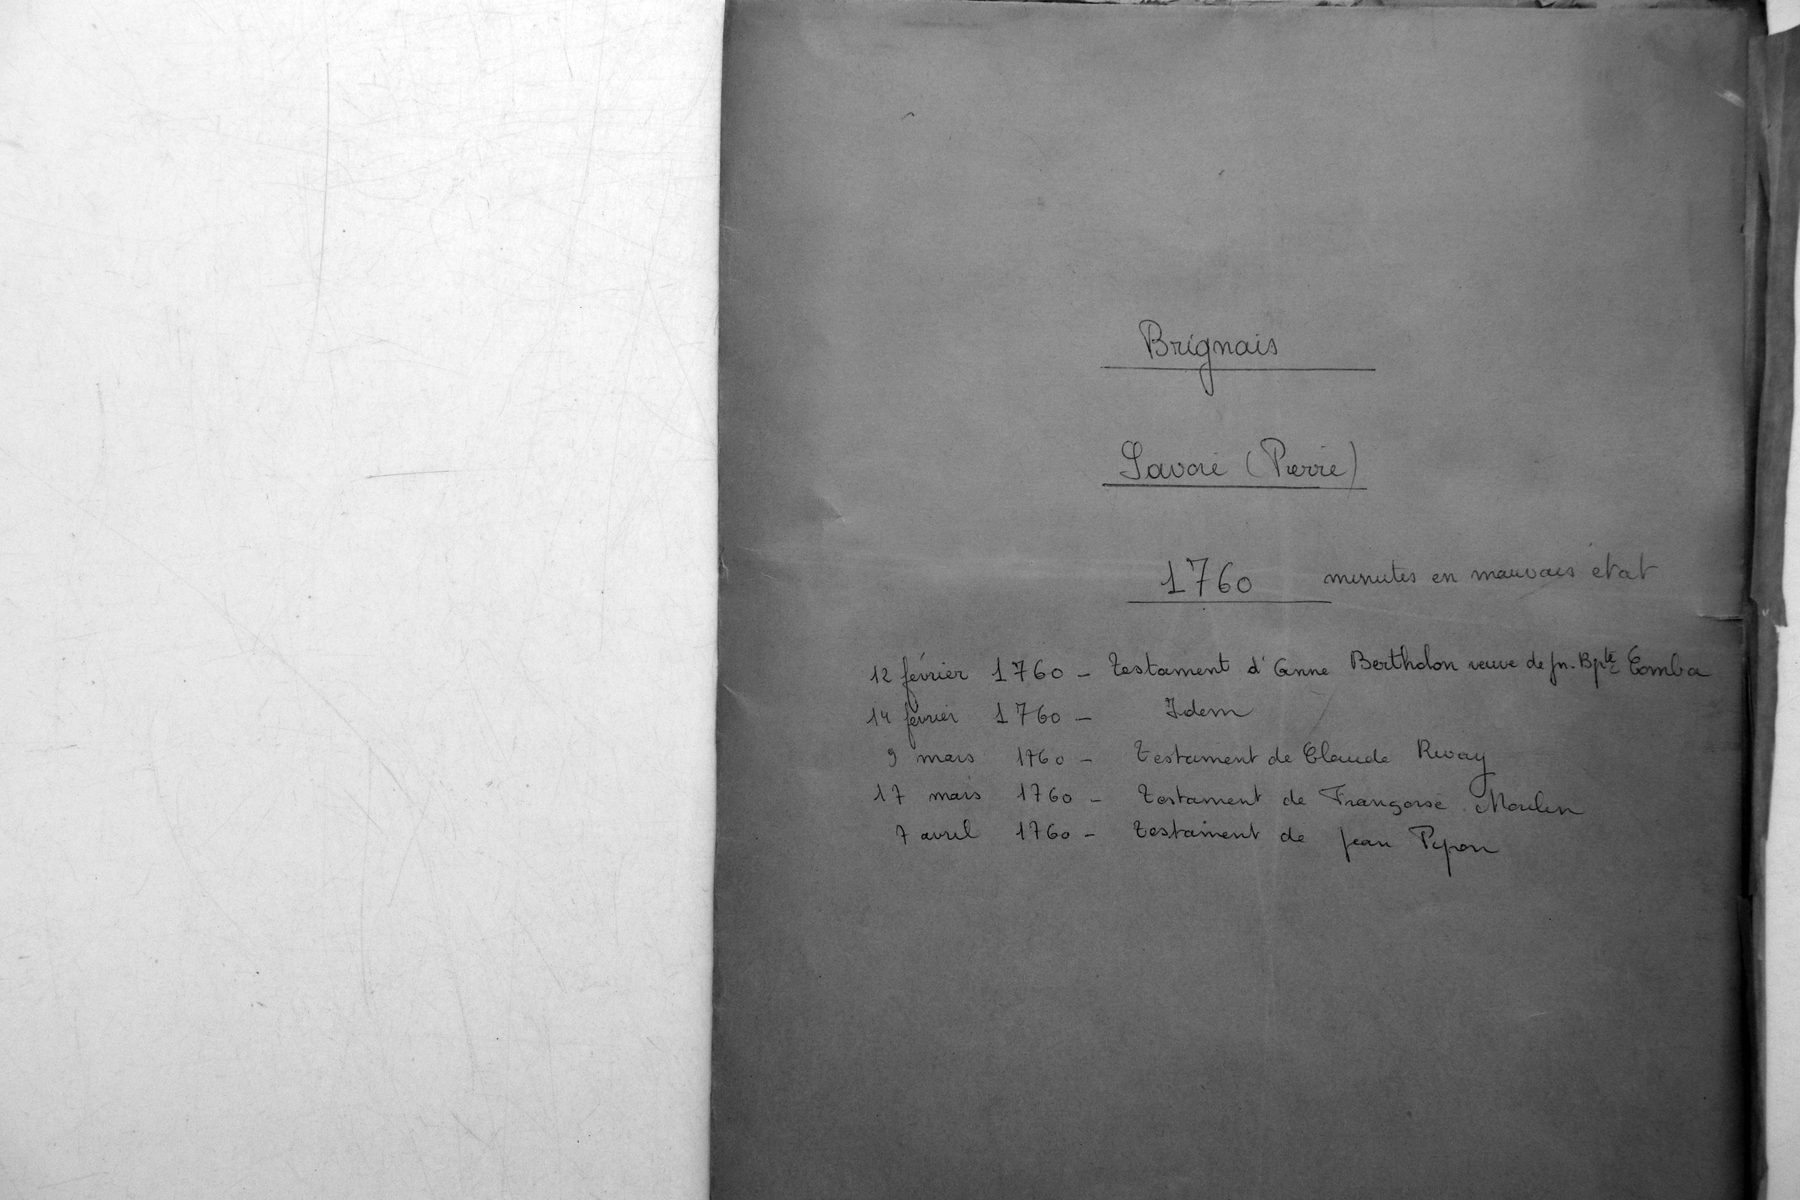 Brignais
Savoie (Pierre)
1760 minutes en mauvais état
12 février 1760 - Testament d'Anne Bertholon veuve de Jn. Bpte Comba
14 février 1760 - Idem
9 mars 1760 - Testament de Claude Rivay
17 mars 1760 - Testament de Françoise Moulin
7 avril 1760 - Testament de Jean Pipon